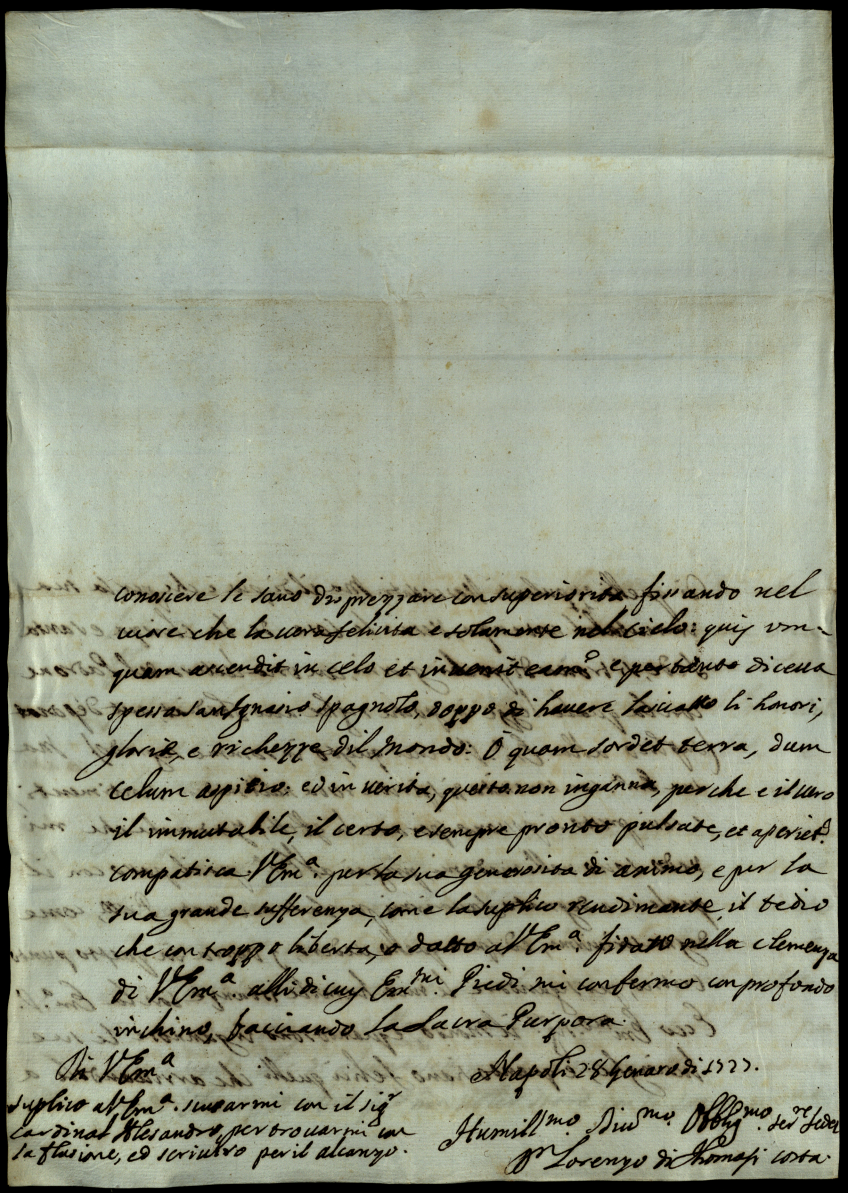 conoscere le sano disprezzare con superiorita fissando nel
cuore che la vera felicita e solamente nel cielo: quis vm-
quam ascendit in celo et invenit eam? e per tanto diceva
spesso san Ignasio spagnolo, doppo di havere lasciatto li honori,
glorie, e richezze dil mondo: O quam sordet terra, dum
celum aspitio: ed in verita, questo non inganna, perche e il vero
il immutabile, il certo, e sempre pronto pulsate, et aperiet.
compatisca V Em.ª per la sua generosita di animo, e per la
sua grande sufferenza, come la suplico il tedio
che con troppo liberta, o datto a V Em.ª fidato nella clemenza
di V Em.ª alli di cuy Em.mi Piedi mi confermo con profondo
inchino, bacciando la Sacra Purpora.
Di V Em.ª
Napoli 28 Genaro di 1727.
suplico a V Em.ª scusarmi con il sig.r
cardinal Alesandro, per trovarmi con
la flusione, ed scrivero per il
Humill.mo Div.mo Obblig.mo ser.re
Lorenzo di Thomasi costa.